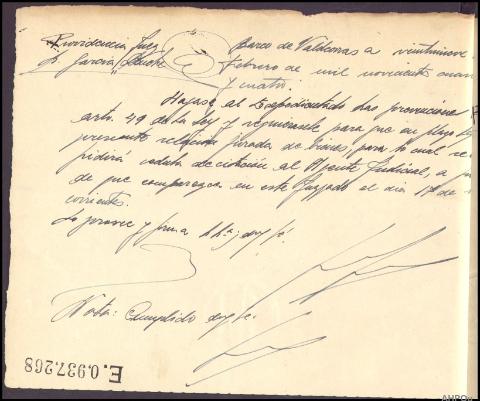 Providencia Juez
Sr. García
Barco de Valdeorras a veintinueve
Febrero de mil novecientos cuaren
y cuatro.
Hágase al Expedientado las prevenciones
artº 49 de la Ley y requiérasele para que en plazo
presente relación jurada de bienes, para lo cual se
pedirá cédula de citación al Agente Judicial, a
de que comparezca en este Juzgado el día 17 de
corrientes.
Lo proveo y firma S.Sª; doy fé.
Nota: Cumplido doy fe.
E.0.937.268
AHPOu